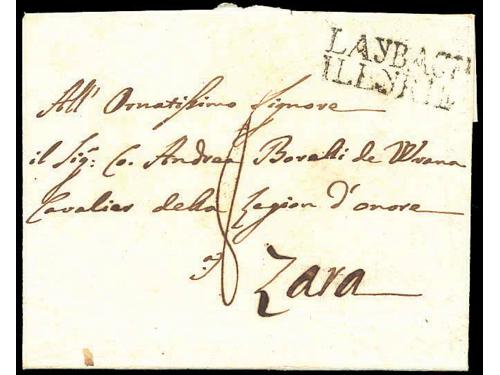 LAYBACH
ILLYRIE
All' Ornatissimo Signore
il Sigr: Co. Andrea Borelli de Wrana
Cavalier della Legion d'onore
Zara